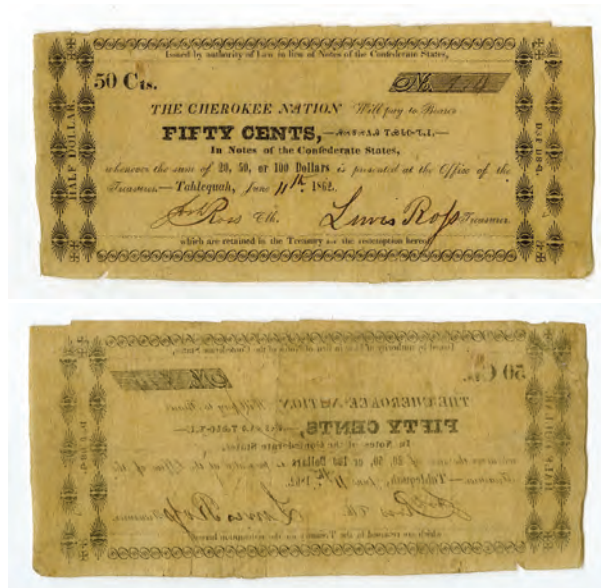 Issued by authority of Law in lieu of Notes of the Confederate States,
50 Cts.
No.
THE CHEROKEE NATION Will pay to Bearer
FIFTY CENTS,
In Notes of the Confederate States,
whenever the sum of 20, 50, or 100 Dollars is presented at the Office of the
Treasurer.—Tahlequah, June 11th 1862.
Ross Clk. Lewis Ross Treasurer
which are retained in the Treasury for the redemption hereof
HALF DOLLAR.